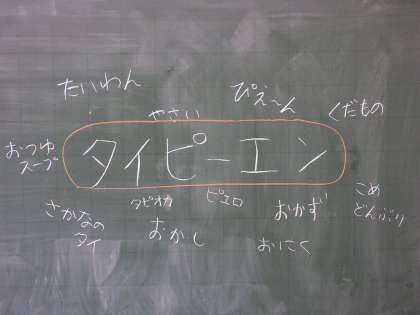 たいわん
ぴえ〜ん
やさい
くだもの
おつゆ
スープ
タイピーエン
こめ
どんぶり
さかなの
タイ
タピオカ
ピエロ
おかず
おかし
おにく